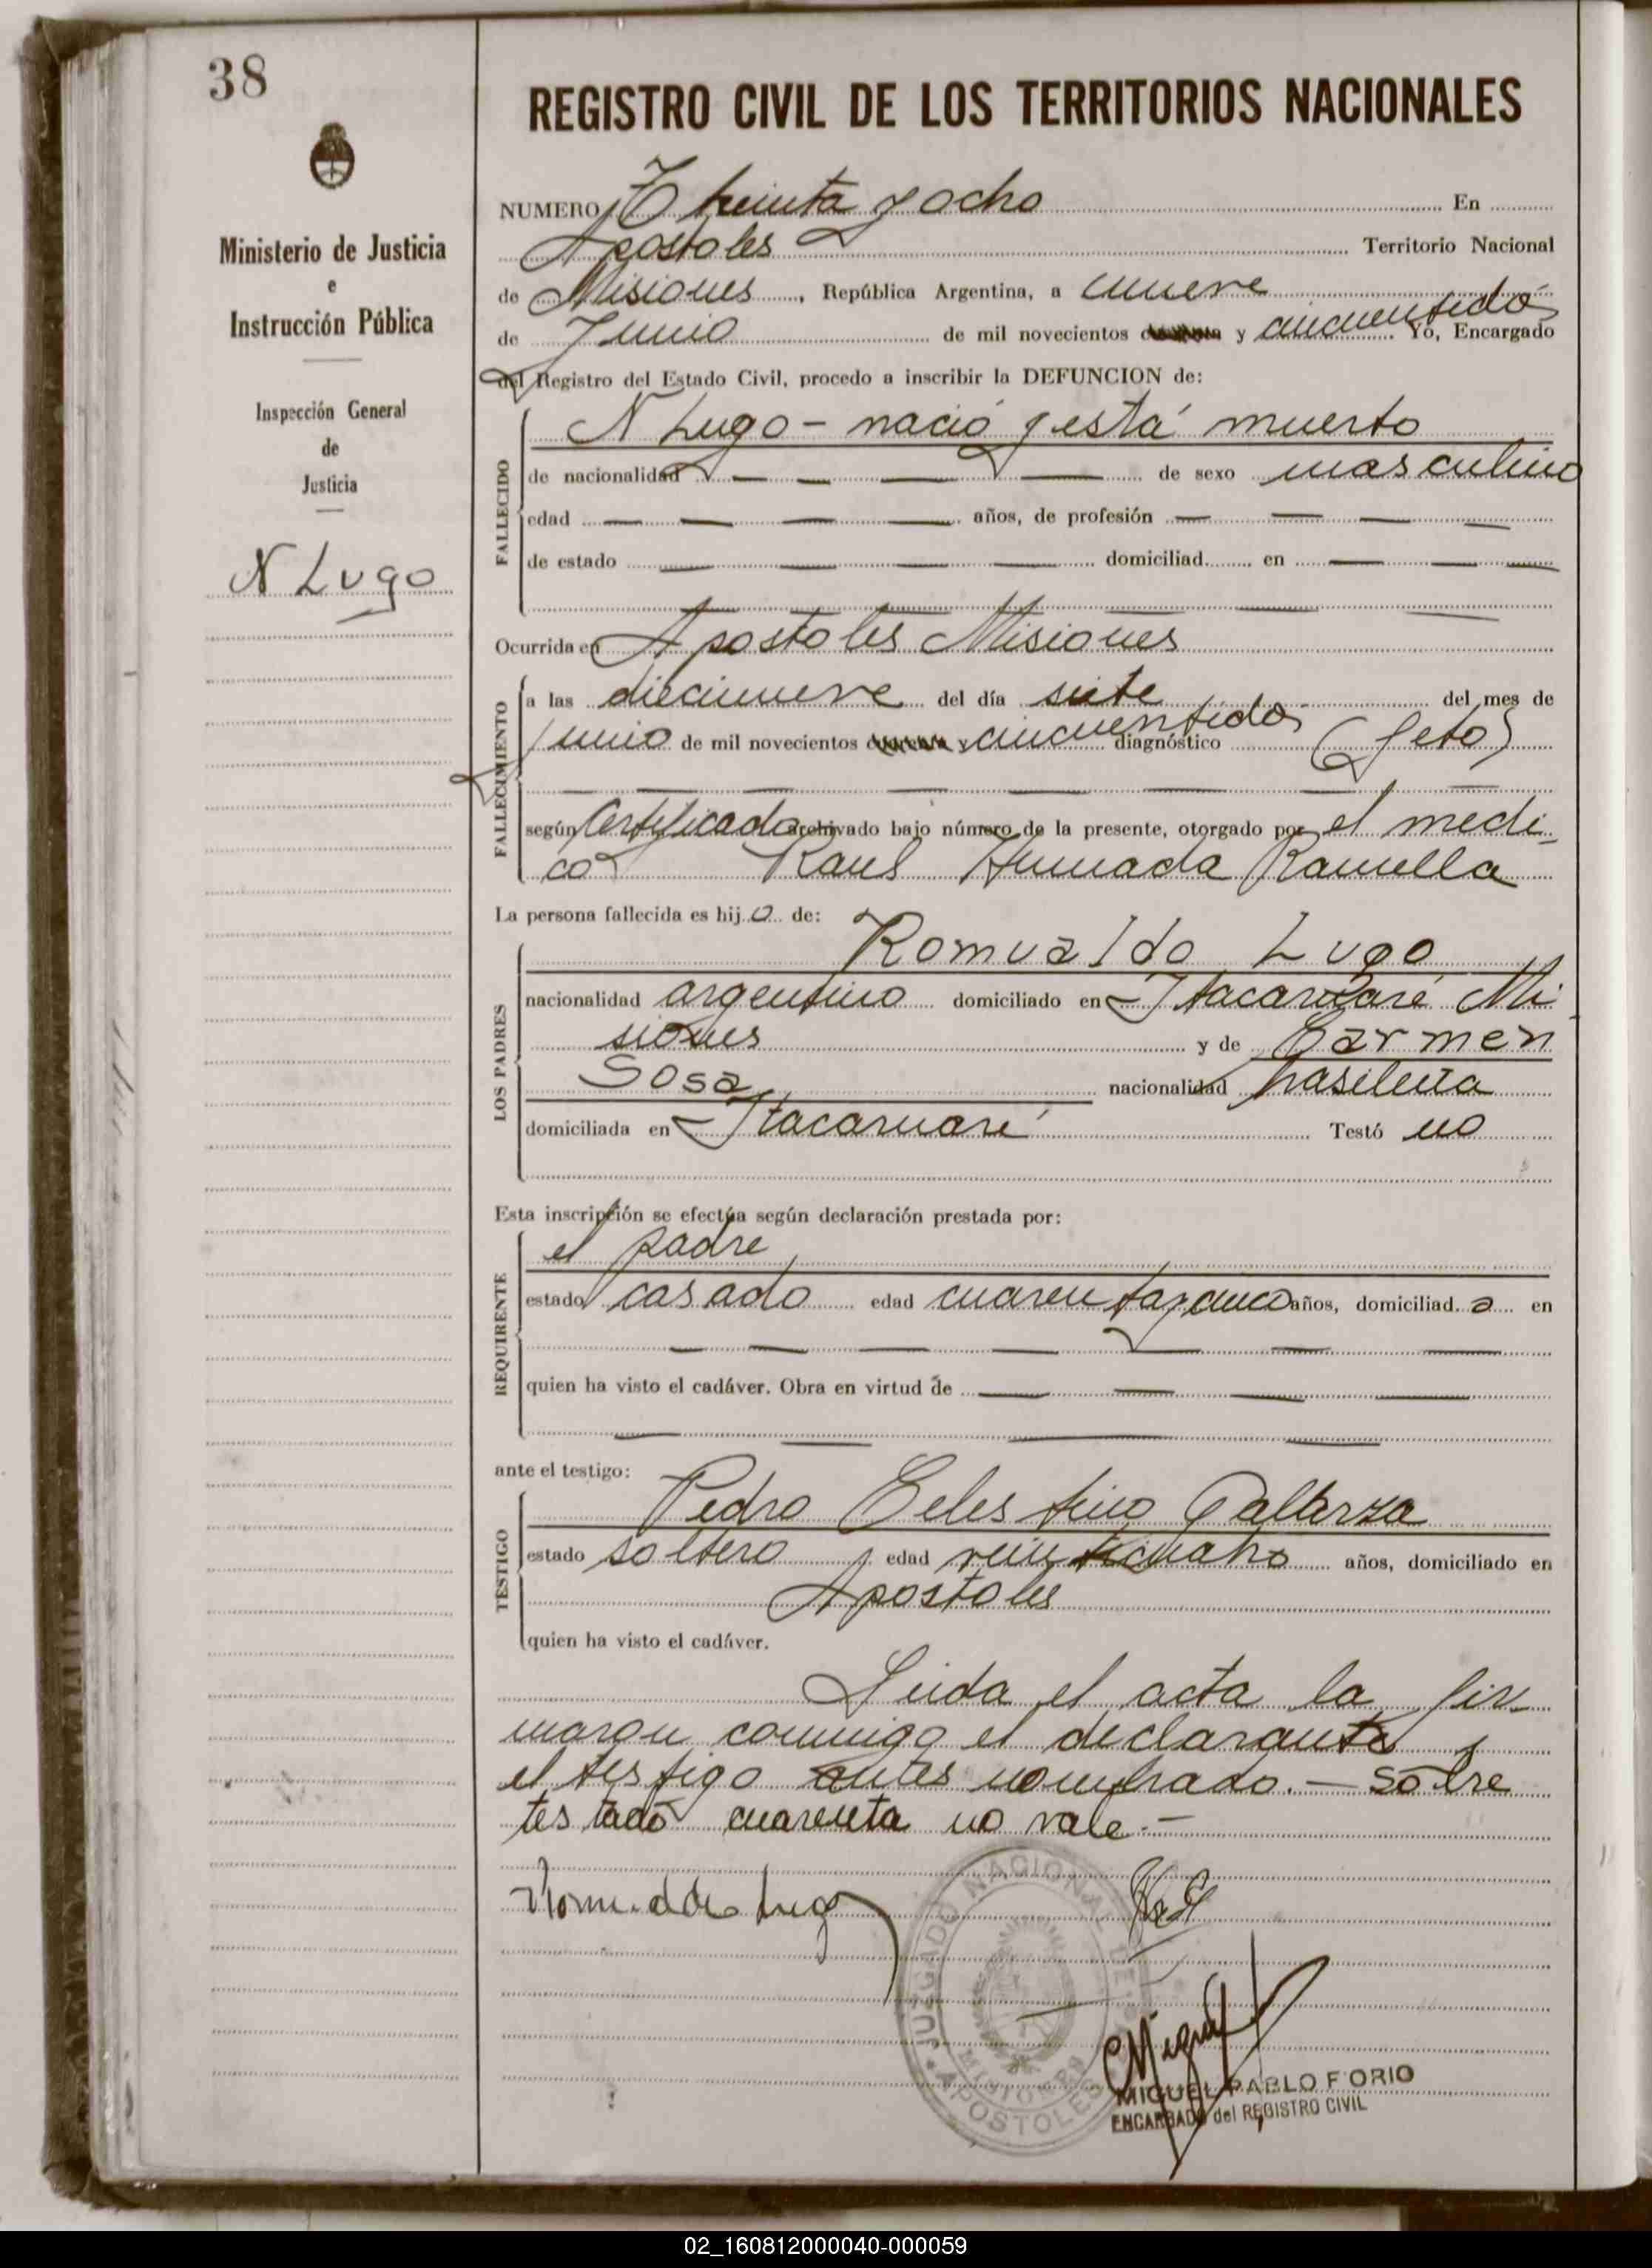 38
REGISTRO CIVIL DE LOS TERRITORIOS NACIONALES
Ministerio de Justicia
e
Instrucción Pública
Inspección General
de
Justicia
N Lugo
NUMERO Treinta y ocho En
Apostoles Territorio Nacional
de Misiones, República Argentina, a nueve
de Junio de mil novecientos y cincuentidós Yo, Encargado
del Registro del Estado Civil, procedo a inscribir la DEFUNCION de:
FALLECIDO
N Lugo - nació y está muerto
de nacionalidad — — — — de sexo masculino
edad — — — — años, de profesión — — — —
de estado — — — — domiciliad en — — —
Ocurrida en Apostoles Misiones
FALLECIMIENTO
a las diecinueve del día siete del mes de
Junio de mil novecientos y cincuentidos diagnóstico (feto)
según Certificado archivado bajo número de la presente, otorgado por el medi-
co Raul Ramella
La persona fallecida es hijo de:
LOS PADRES
Romualdo Lugo
nacionalidad argentino domiciliado en Itacaruaré Mi
siones y de Carmen
Sosa nacionalidad brasileña
domiciliada en Itacaruaré Testó no
Esta inscripción se efectúa según declaración prestada por:
REQUIRENTE
el padre
estado casado edad cuarentaycinco años, domiciliado en
— — — — — — —
quien ha visto el cadáver. Obra en virtud de — — — —
ante el testigo:
TESTIGO
Pedro Celestino
estado soltero edad veinticuatro años, domiciliado en
Apostoles
quien ha visto el cadáver.
Leida el acta la fir
maron conmigo el declarante y
el testigo antes nombrado. — Sobre
testado cuarenta no vale. —
Romualdo Lugo
JUZGADO NACIONAL DE
MISIONES
APOSTOLES
MIGUEL PABLO F ORIO
ENCARGADO del REGISTRO CIVIL
02_160812000040-000059